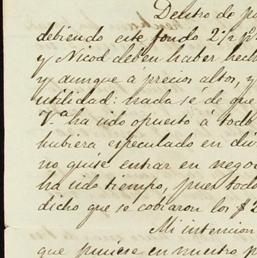 Dentro de
debiendo este fondo 2½ p
y Nicod deben haber hech
y aunque a precios altos, y
utilidad: nada sé de que
V.ª ha sido opuesto a todo
hubiera especulado en div
no quise entrar en negoc
ha sido tiempo, pues todo
dicho que se cobraron los $2
Mi intencion
que pusiese en nuestro p